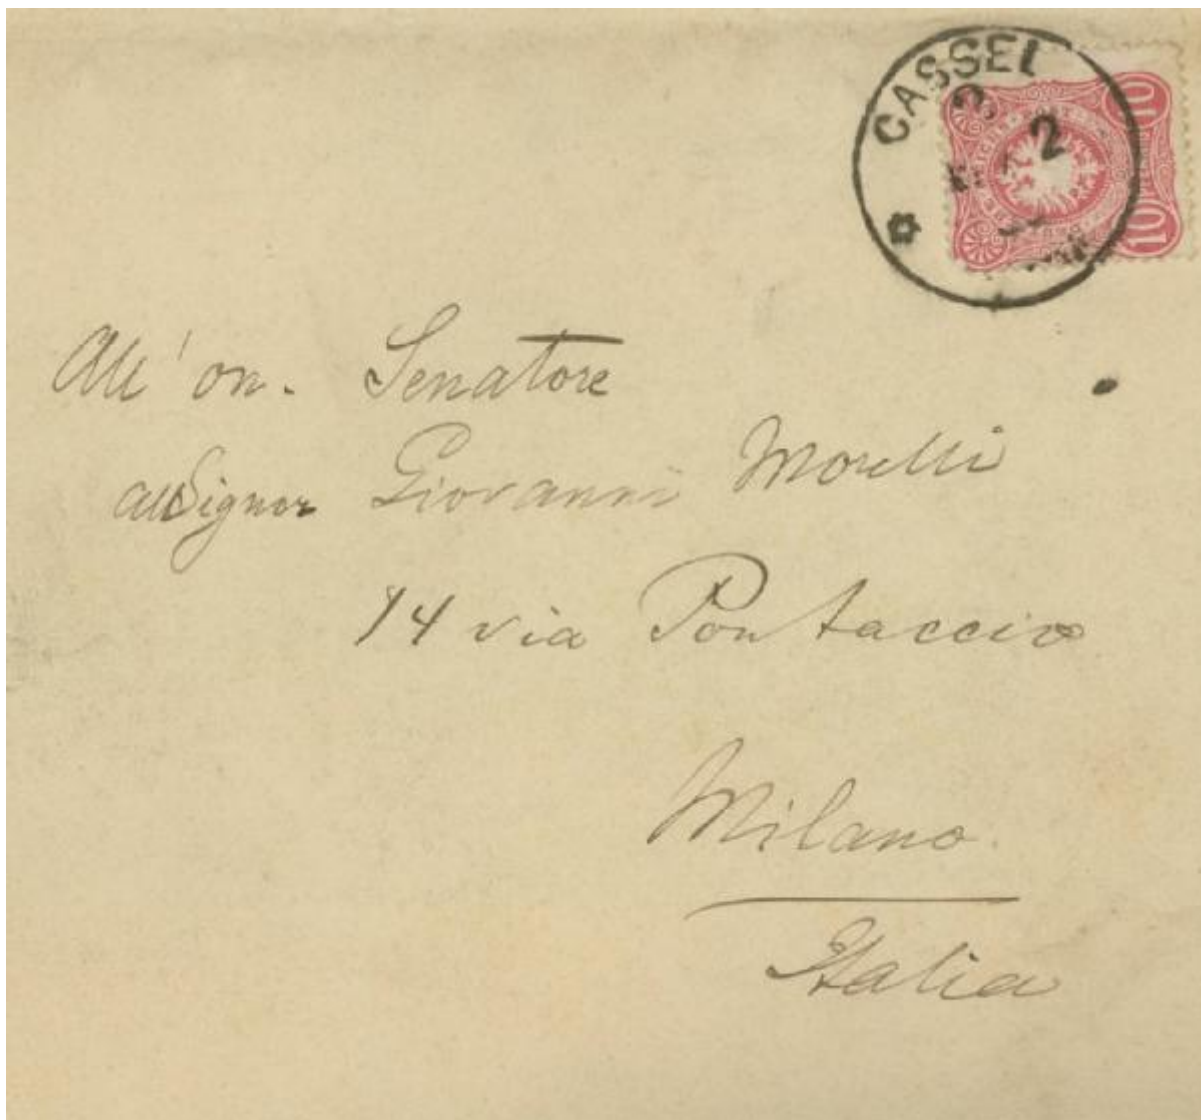 CASSEL
2
10
10
All' on. Senatore
al Signor Giovanni Morelli
14 via Pontaccio
Milano.
Italia